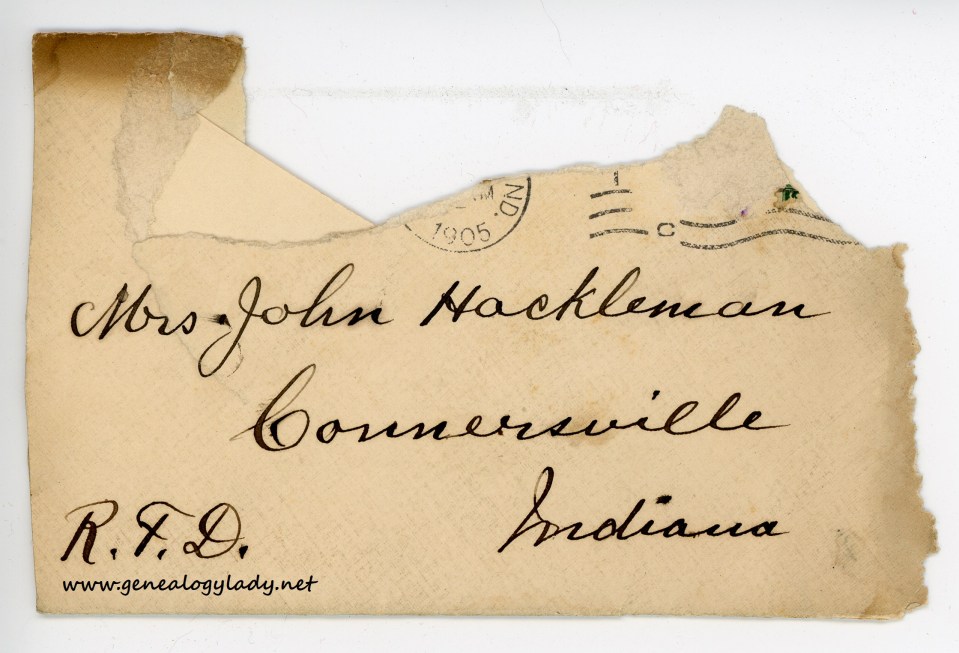 IND.
1905
C
Mrs. John Hackleman
Connersville
Indiana
R.F.D.
www.genealogylady.net